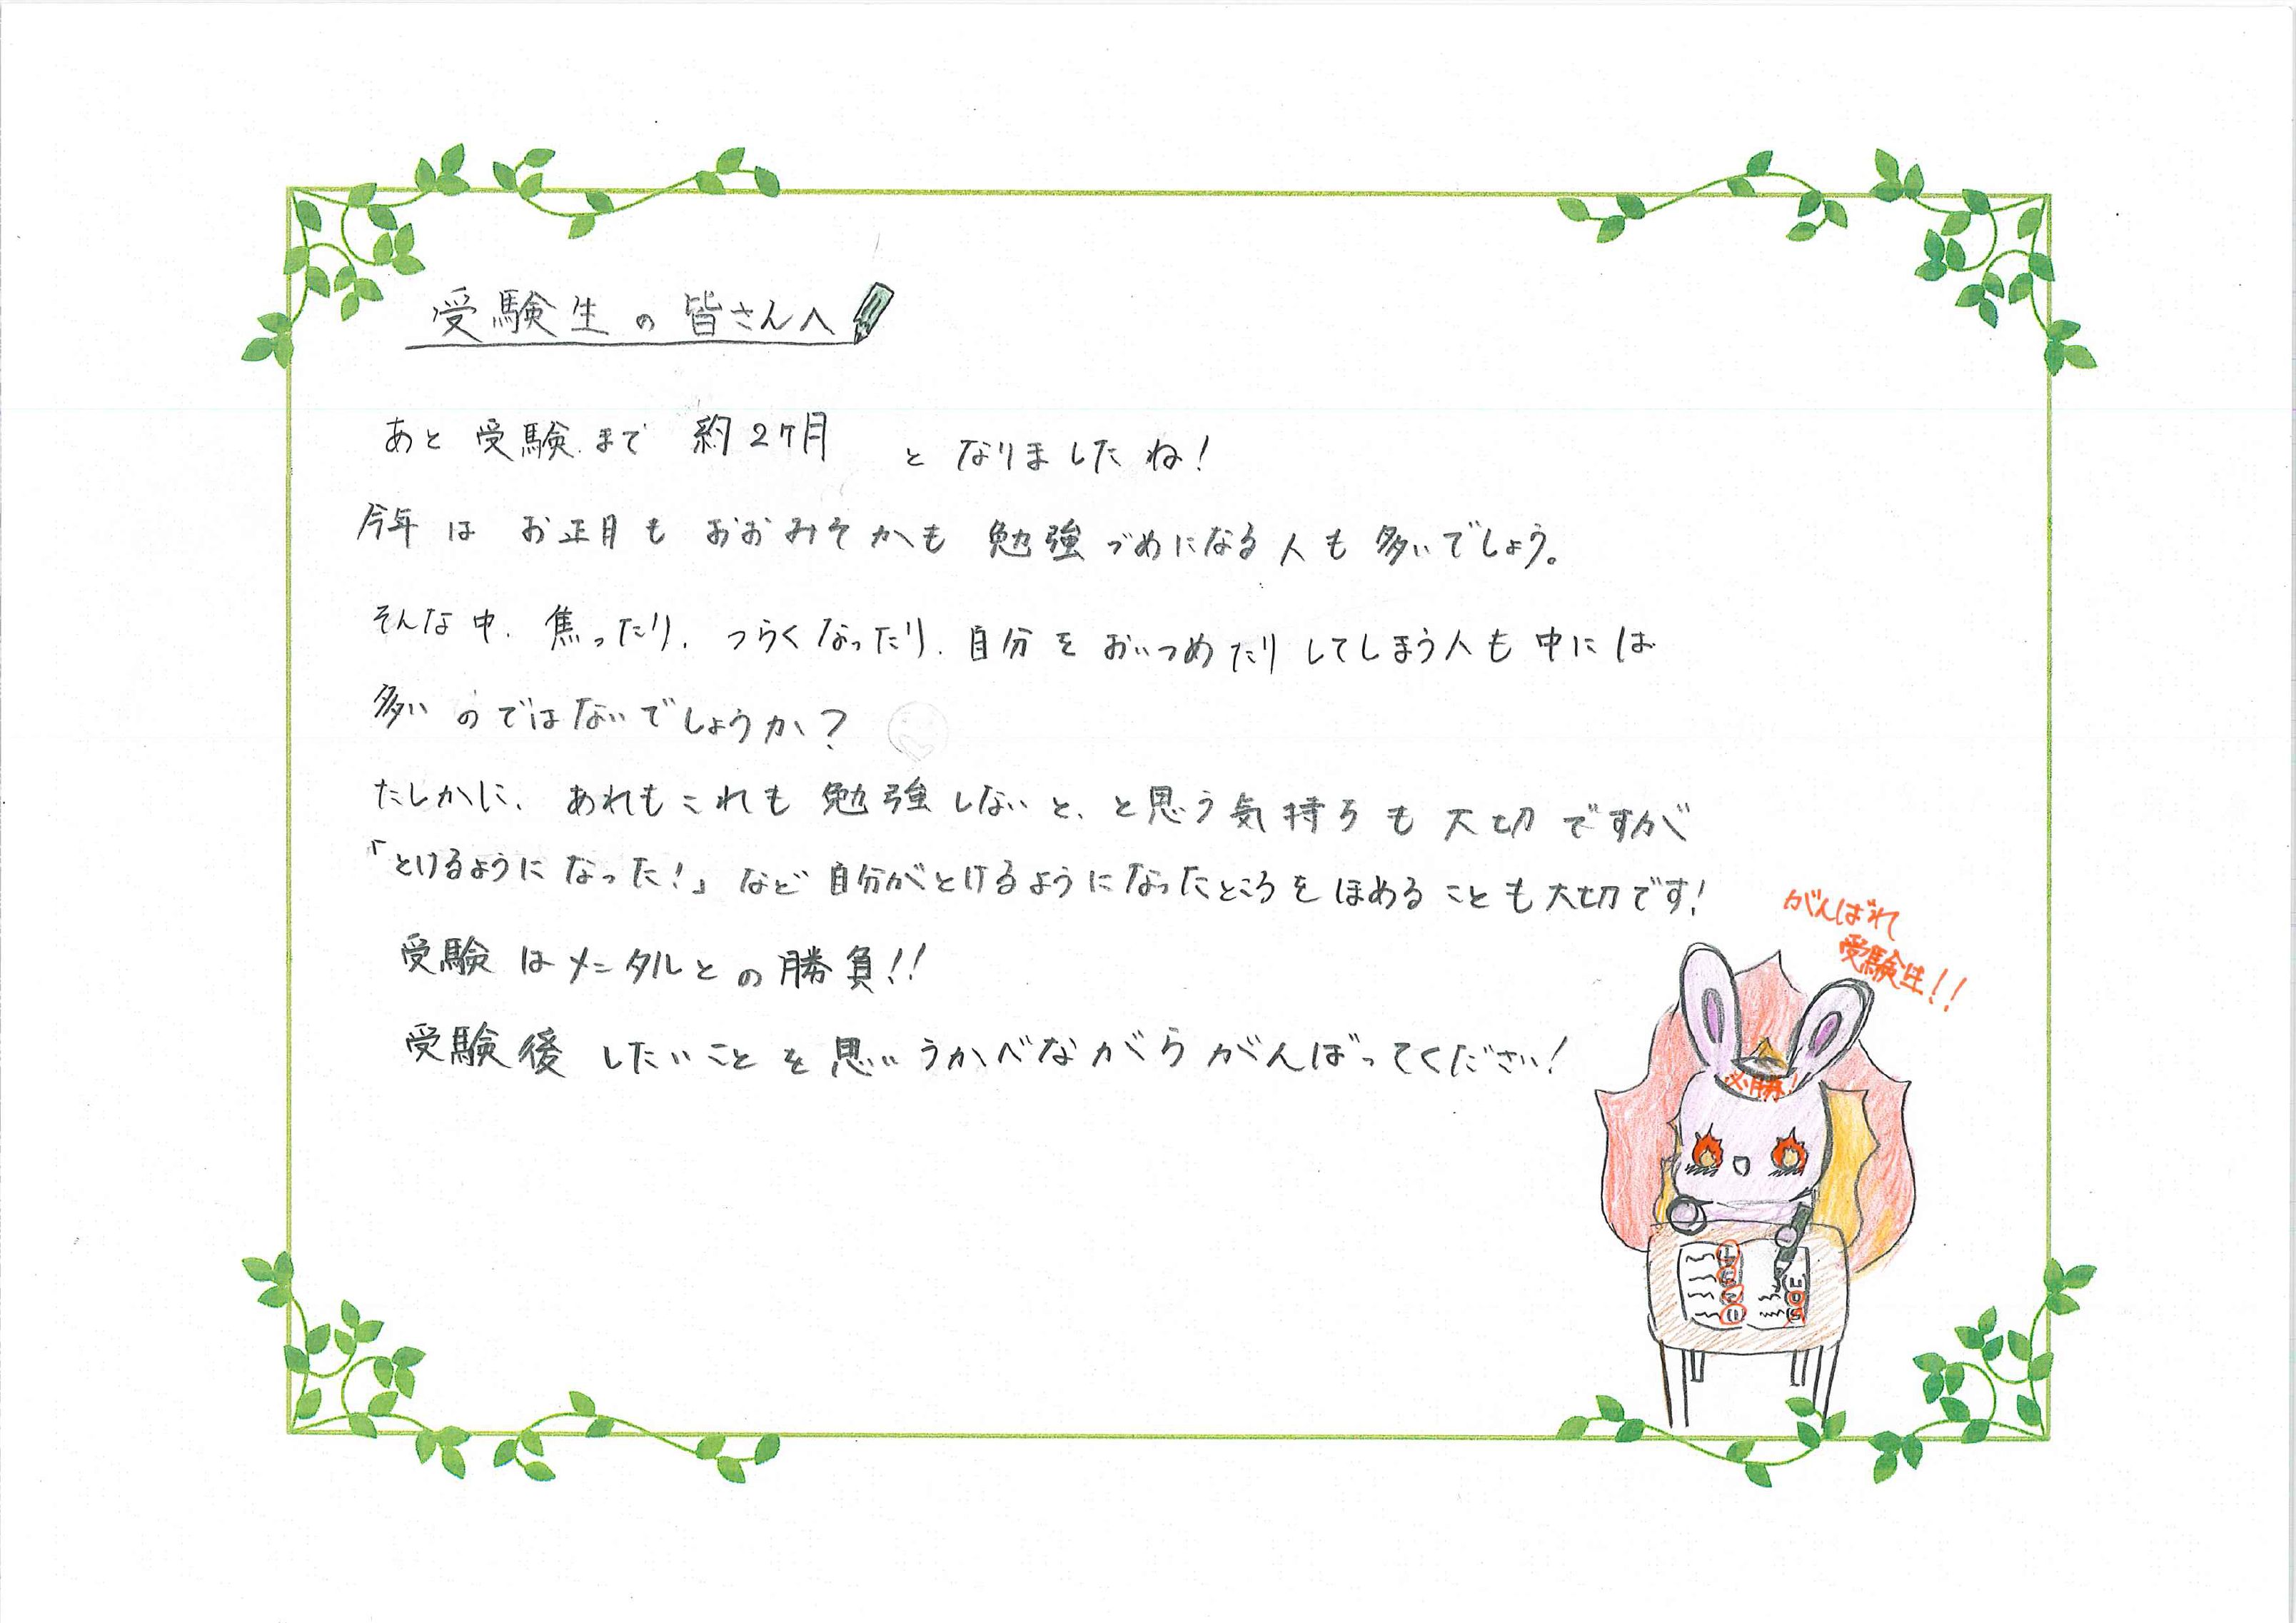 受験生の皆さんへ
あと受験まで約2ヶ月となりましたね!
今年はお正月もおおみそかも勉強づめになる人も多いでしょう。
そんな中、焦ったり、つらくなったり、自分をおいつめたりしてしまう人も中には
多いのではないでしょうか?
たしかに、あれもこれも勉強しないと、と思う気持ちも大切ですが
「とけるようになった!」など自分がとけるようになったところをほめることも大切です!
受験はメンタルとの勝負!!
受験後したいことを思いうかべながらがんばってください!
がんばれ
受験生!!
必勝!